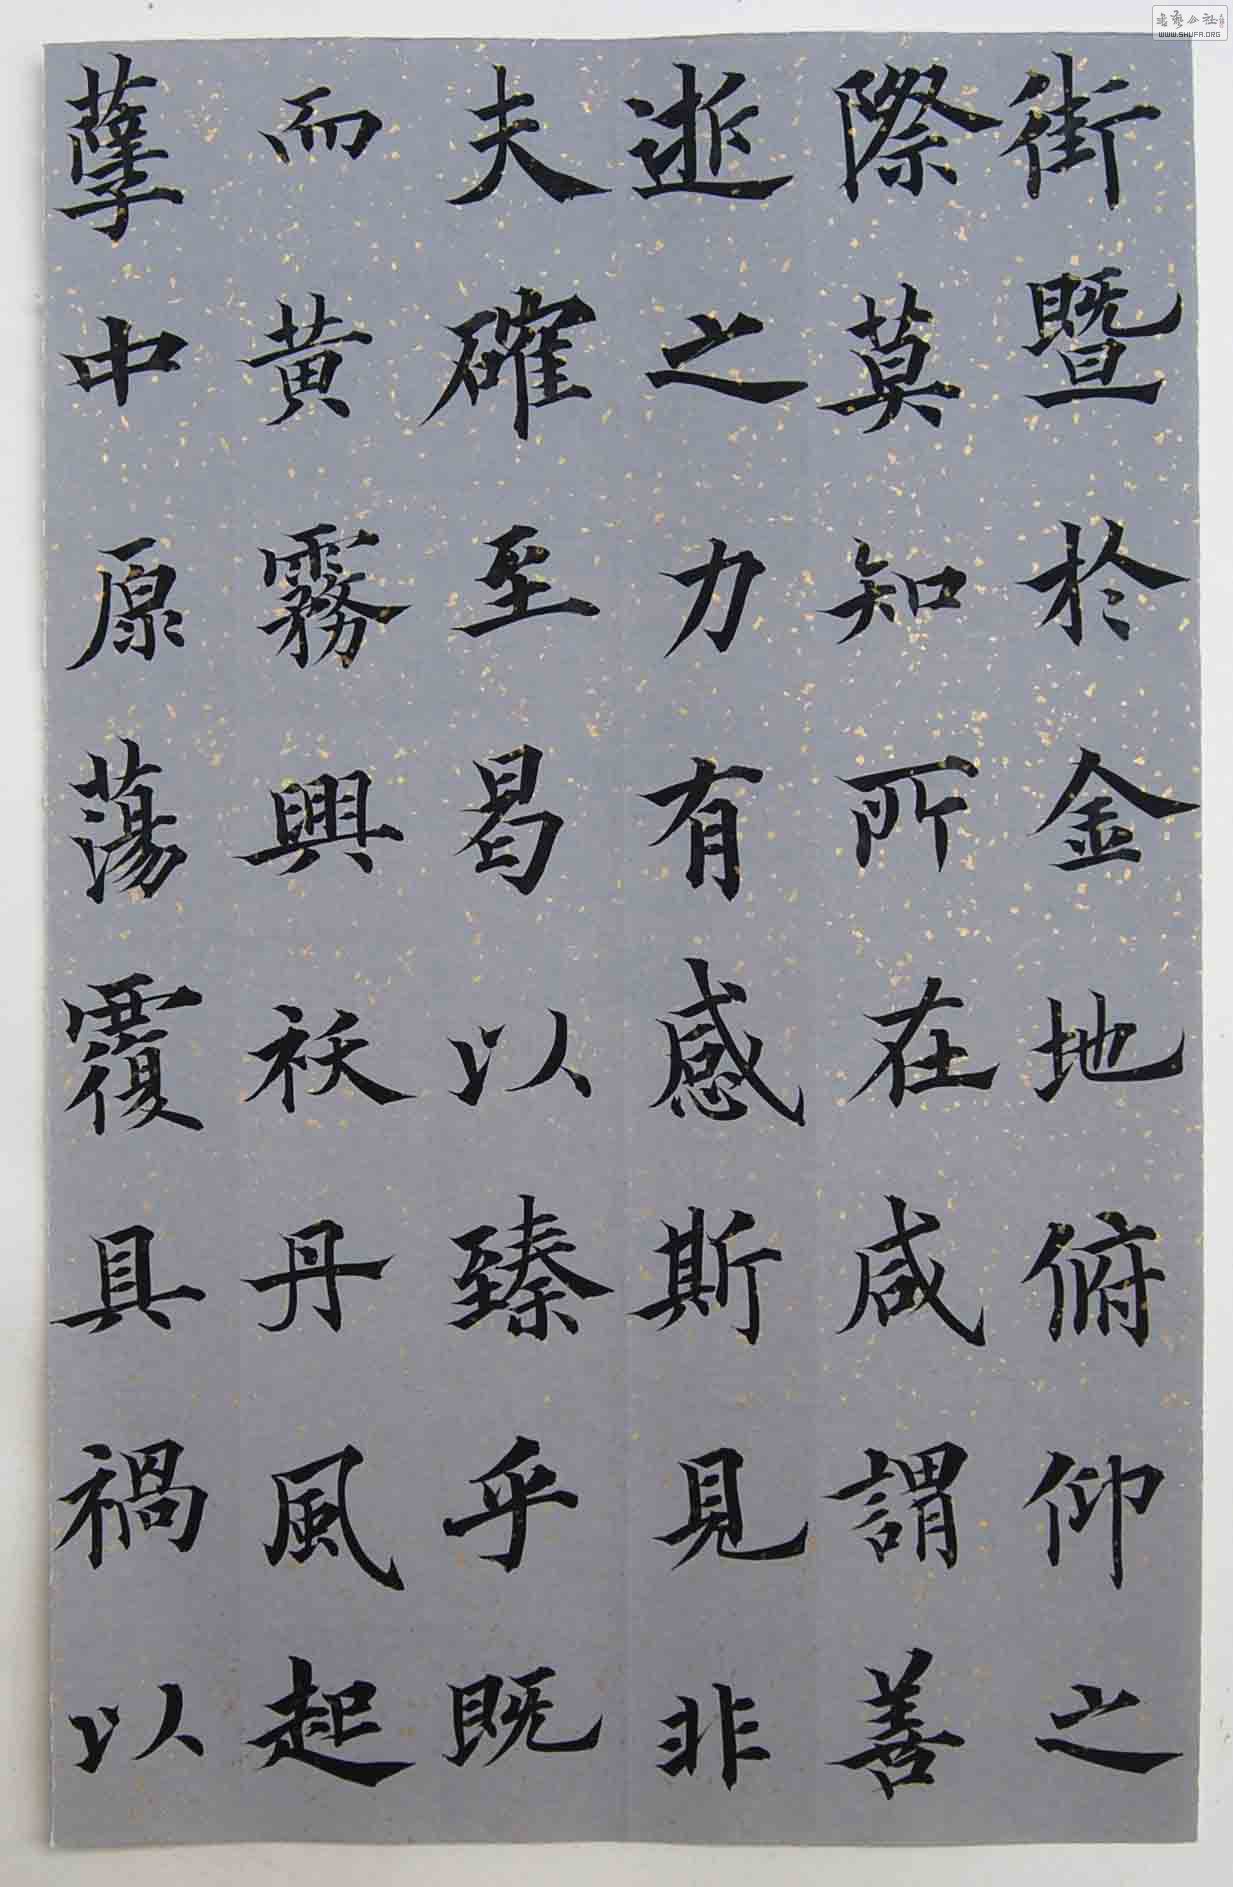 街暨於金地俯仰之
際莫知所在咸謂善
逝之力有感斯見非
夫確至曷以臻乎既
而黃霧興祅丹風起
孽中原蕩覆具禍以
WWW.SHUFA.ORG